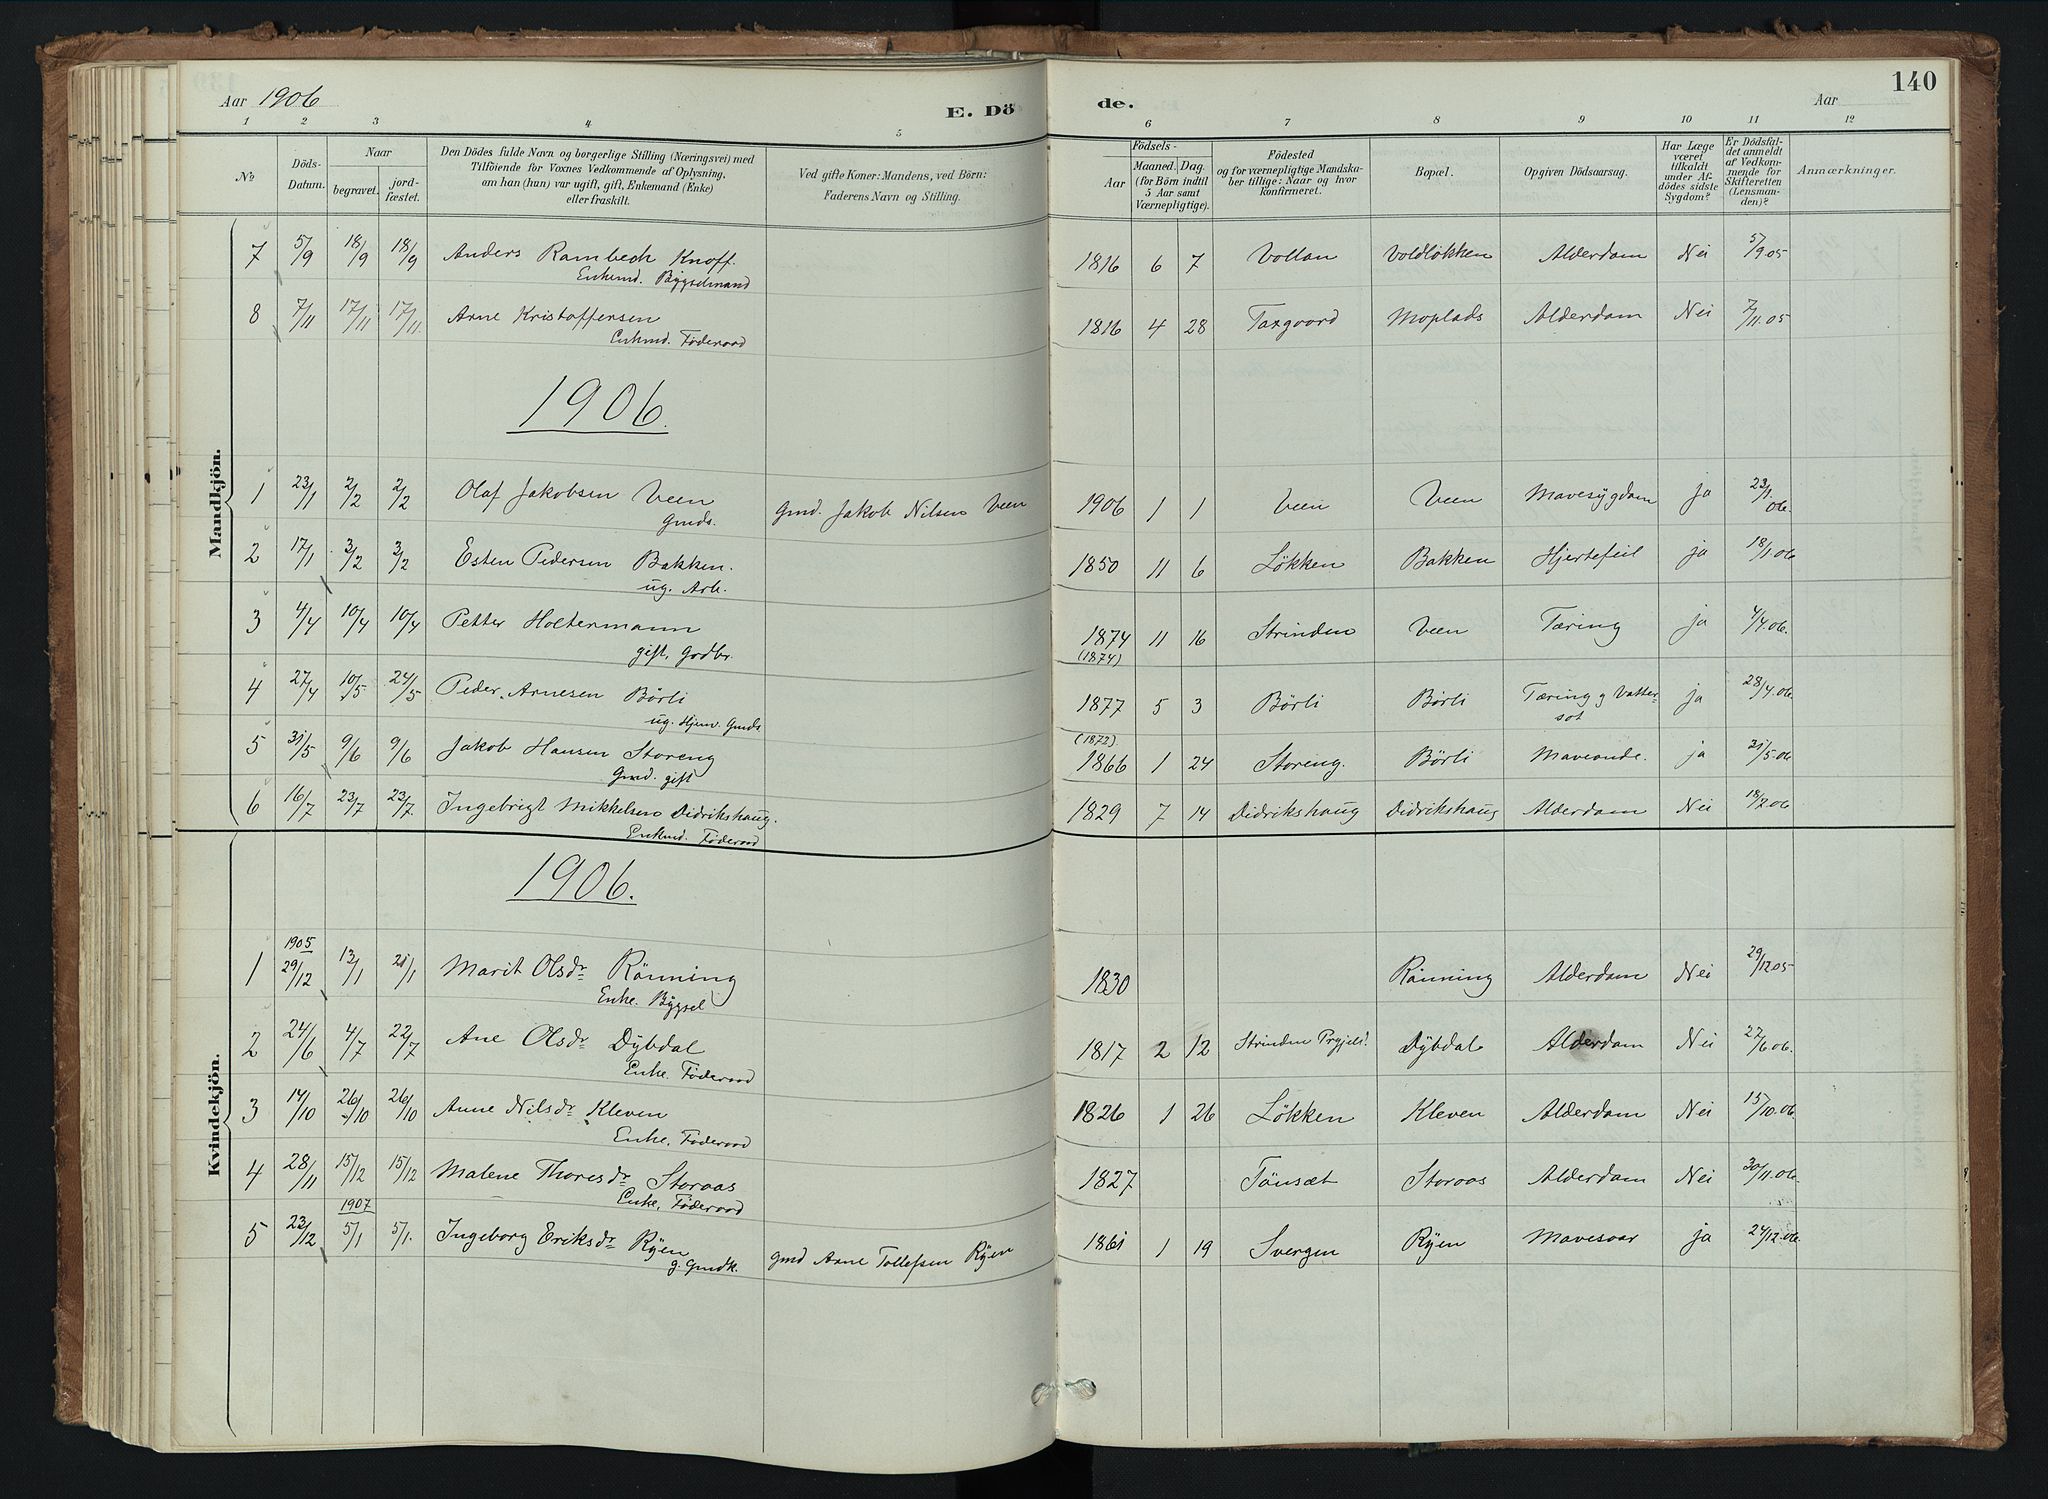 Aar 1906
E. Dö
de.
Aar
140
1 2 3 4 5 6 7 8 9 10 11 12
No
Döds-Datum.
Naar
begravet.
jord-fæstet.
Den Dödes fulde Navn og borgerlige Stilling (Næringsvei) med
Tilföiende for Voxnes Vedkommende af Oplysning,
om han (hun) var ugift, gift, Enkemand (Enke)
eller fraskilt.
Ved gifte Koner: Mandens, ved Börn:
Faderens Navn og Stilling.
Födsels-
Aar
Maaned. Dag.
(for Börn indtil
5 Aar samt
Værnepligtige).
Födested
og for værnepligtige Mandska-
ber tillige: Naar og hvor
konfirmeret.
Bopæl.
Opgiven Dödsaarsag.
Har Læge
været
tilkaldt
under Af-
dödes sidste
Sygdom?
Er Dödsfal-
det anmeldt
af Vedkom-
mende for
Skifteretten
(Lensman-
den)?
Anmærkninger.
Mandkjön.
7 5/9 18/9 18/9 Anders Rambech Knoff. 1816 6 7 Vollan Voldløkken Alderdom Nei 5/9.05
Enkemd. Bÿgselmand
8 7/11 17/11 17/11. Arne Kristoffersen 1816 4 28 Taxgaard Moplads Alderdom Nei 7/11.05
Enkmd. Föderaad
1906.
1 23/1 2/2 2/2 Olaf Jakobsen Veen Gmd. Jakob Nilsen Veen 1906 1 1 Veen Veen Mavesÿgdom ja 23/1.06.
Gmds.
2 17/1 3/2 3/2 Esten Pedersen Bakken. 1850 11 6 Løkken Bakken Hjertefeil ja 18/1.06
ug. Arb.
3 4/4 10/4 10/4 Petter Holtermann 1874 11 16 Strinden Veen Tæring ja 4/4.06.
gift, Grdbr. (1874)
4 27/4 10/5 24/5 Peder Arnesen Börli 1877 5 3 Börli Börli Tæring og Vatter-
sot ja 28/4.06.
ug. Hjem. Gmds
5 31/5 9/6 9/6 Jakob Hansen Storeng (1872) 1866 1 24 Storeng. Börli Maveonde. ja 31/5.06
Gmd. gift
6 16/7 23/7 23/7. Ingebrigt Mikkelsen Didrikshaug. 1829 7 14 Didrikshaug Didrikshaug Alderdom Nei 18/7.06
Enkmd. Föderaad
Kvindekjön.
1906.
1 1905 29/12 13/1 21/1 Marit Olsdr Rönning 1830 Rönning Alderdom Nei 29/12.05
Enke. Bÿgsel
2 24/6 4/7 22/7 Ane Olsdr Dÿbdal 1817 2 12 Strinden Prgjeld. Dÿbdal Alderdom Nei 27/6.06.
Enke. Föderaad
3 14/10 26/10 26/10 Anne Nilsdr Kleven 1826 1 26 Løkken Kleven Alderdom Nei 15/10.06.
Enke, Föderaad
4 28/11 15/12 15/12 Malene Thoresdr Storaas 1827 Tönsæt Storaas Alderdom Nei 30/11.06.
Enke, Föderaad
5 23/12 1907 5/1 5/1. Ingeborg Eriksdr Rÿen gmd Arne Tollefsen Rÿen 1861 1 19 Svergen Rÿen Mavesaar ja 24/12.06.
g. Gmdk.